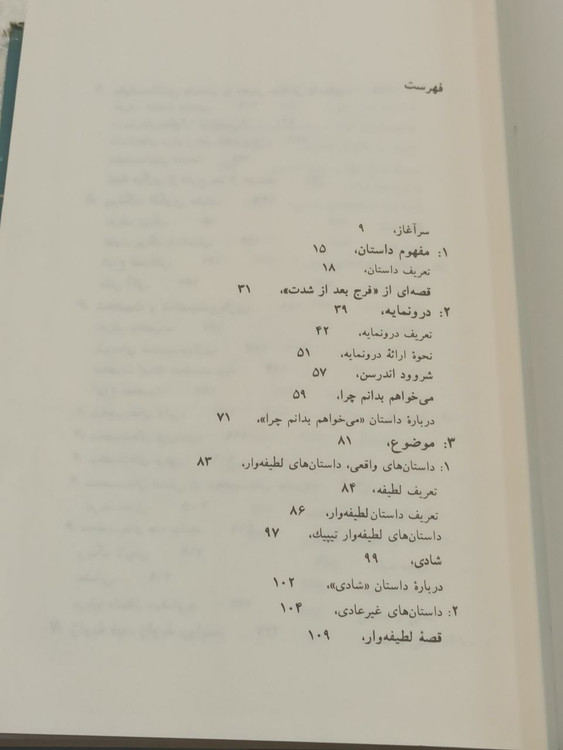 فهرست
سرآغاز، ۹
۱: مفهوم داستان، ۱۵
تعریف داستان، ۱۸
قصه‌ای از «فرج بعد از شدت»، ۳۱
۲: درونمایه، ۳۹
تعریف درونمایه، ۴۲
نحوهٔ ارائهٔ درونمایه، ۵۱
شروود اندرسن، ۵۷
می‌خواهم بدانم چرا، ۵۹
دربارهٔ داستان «می‌خواهم بدانم چرا»، ۷۱
۳: موضوع، ۸۱
۱: داستان‌های واقعی، داستان‌های لطیفه‌وار، ۸۳
تعریف لطیفه، ۸۴
تعریف داستان لطیفه‌وار، ۸۶
داستان‌های لطیفه‌وار تیپیك، ۹۷
شادی، ۹۹
دربارهٔ داستان «شادی»، ۱۰۲
۲: داستان‌های غیرعادی، ۱۰۴
قصهٔ لطیفه‌وار، ۱۰۹